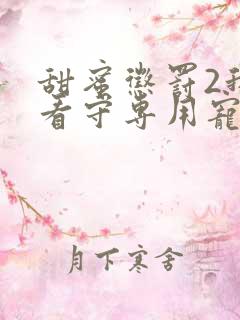 甜蜜惩罚2我
看守专用宠
月下寒舍